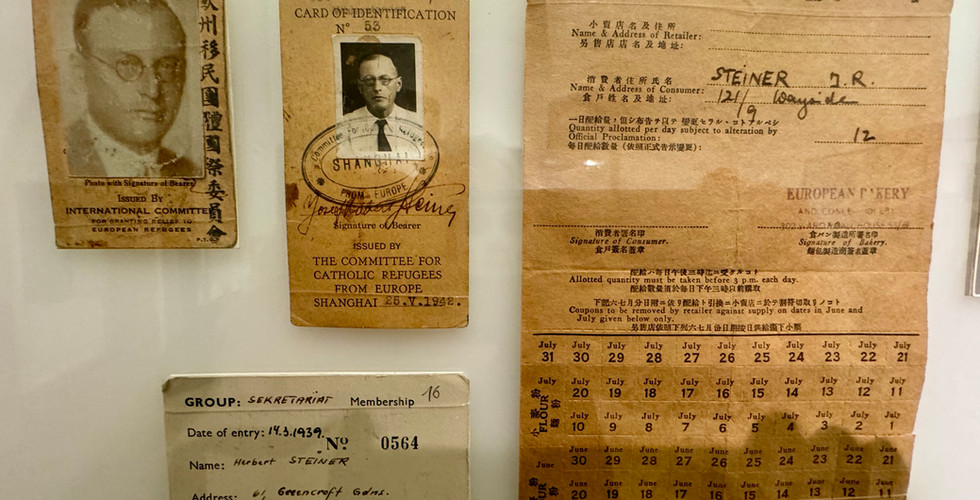 州移民團體國際委員會
Photo with Signature of Bearer
ISSUED BY
INTERNATIONAL COMMITTEE
FOR GRANTING RELIEF TO
EUROPEAN REFUGEES
CARD OF IDENTIFICATION
Nº 53
Committee for Catholic Refugees
SHANGHAI
FROM EUROPE
Signature of Bearer
ISSUED BY
THE COMMITTEE FOR
CATHOLIC REFUGEES
FROM EUROPE
SHANGHAI 25.V.1942.
GROUP: SEKRETARIAT Membership 16
Date of entry: 14.3.1939. Nº 0564
Name: Herbert STEINER
Address: 61, Greencroft Gdns.
小賣店名及住所
Name & Address of Retailer:
另售店店名及地址:
消費者住所氏名 STEINER J.R.
Name & Address of Consumer:
食戶姓名及地址: 121/9 Wayside
Quantity allotted per day subject to alteration by
Official Proclamation: 12
每日配給數量(依照正式告示變更):
EUROPEAN BAKERY
消費者署名印
Signature of Consumer.
食戶簽名蓋章
食パン製造所署名印
Signature of Bakery.
麵包製造商簽名蓋章
Allotted quantity must be taken before 3 p.m. each day.
配給數量須於每日下午三時以前購取
Coupons to be removed by retailer against supply on dates in June and
July given below only.
July July July July July July July July July July July
31 30 29 28 27 26 25 24 23 22 21
July July July July July July July July July July
20 19 18 17 16 15 14 13 12 11
July July July July July July July July July July
10 9 8 7 6 5 4 3 2 1
June June June June June June June June June June
30 29 28 27 26 25 24 23 22 21
June June June June June June June June June June
20 19 18 17 16 15 14 13 12 11
小麥粉
FLOUR
麵粉
June
FLOUR